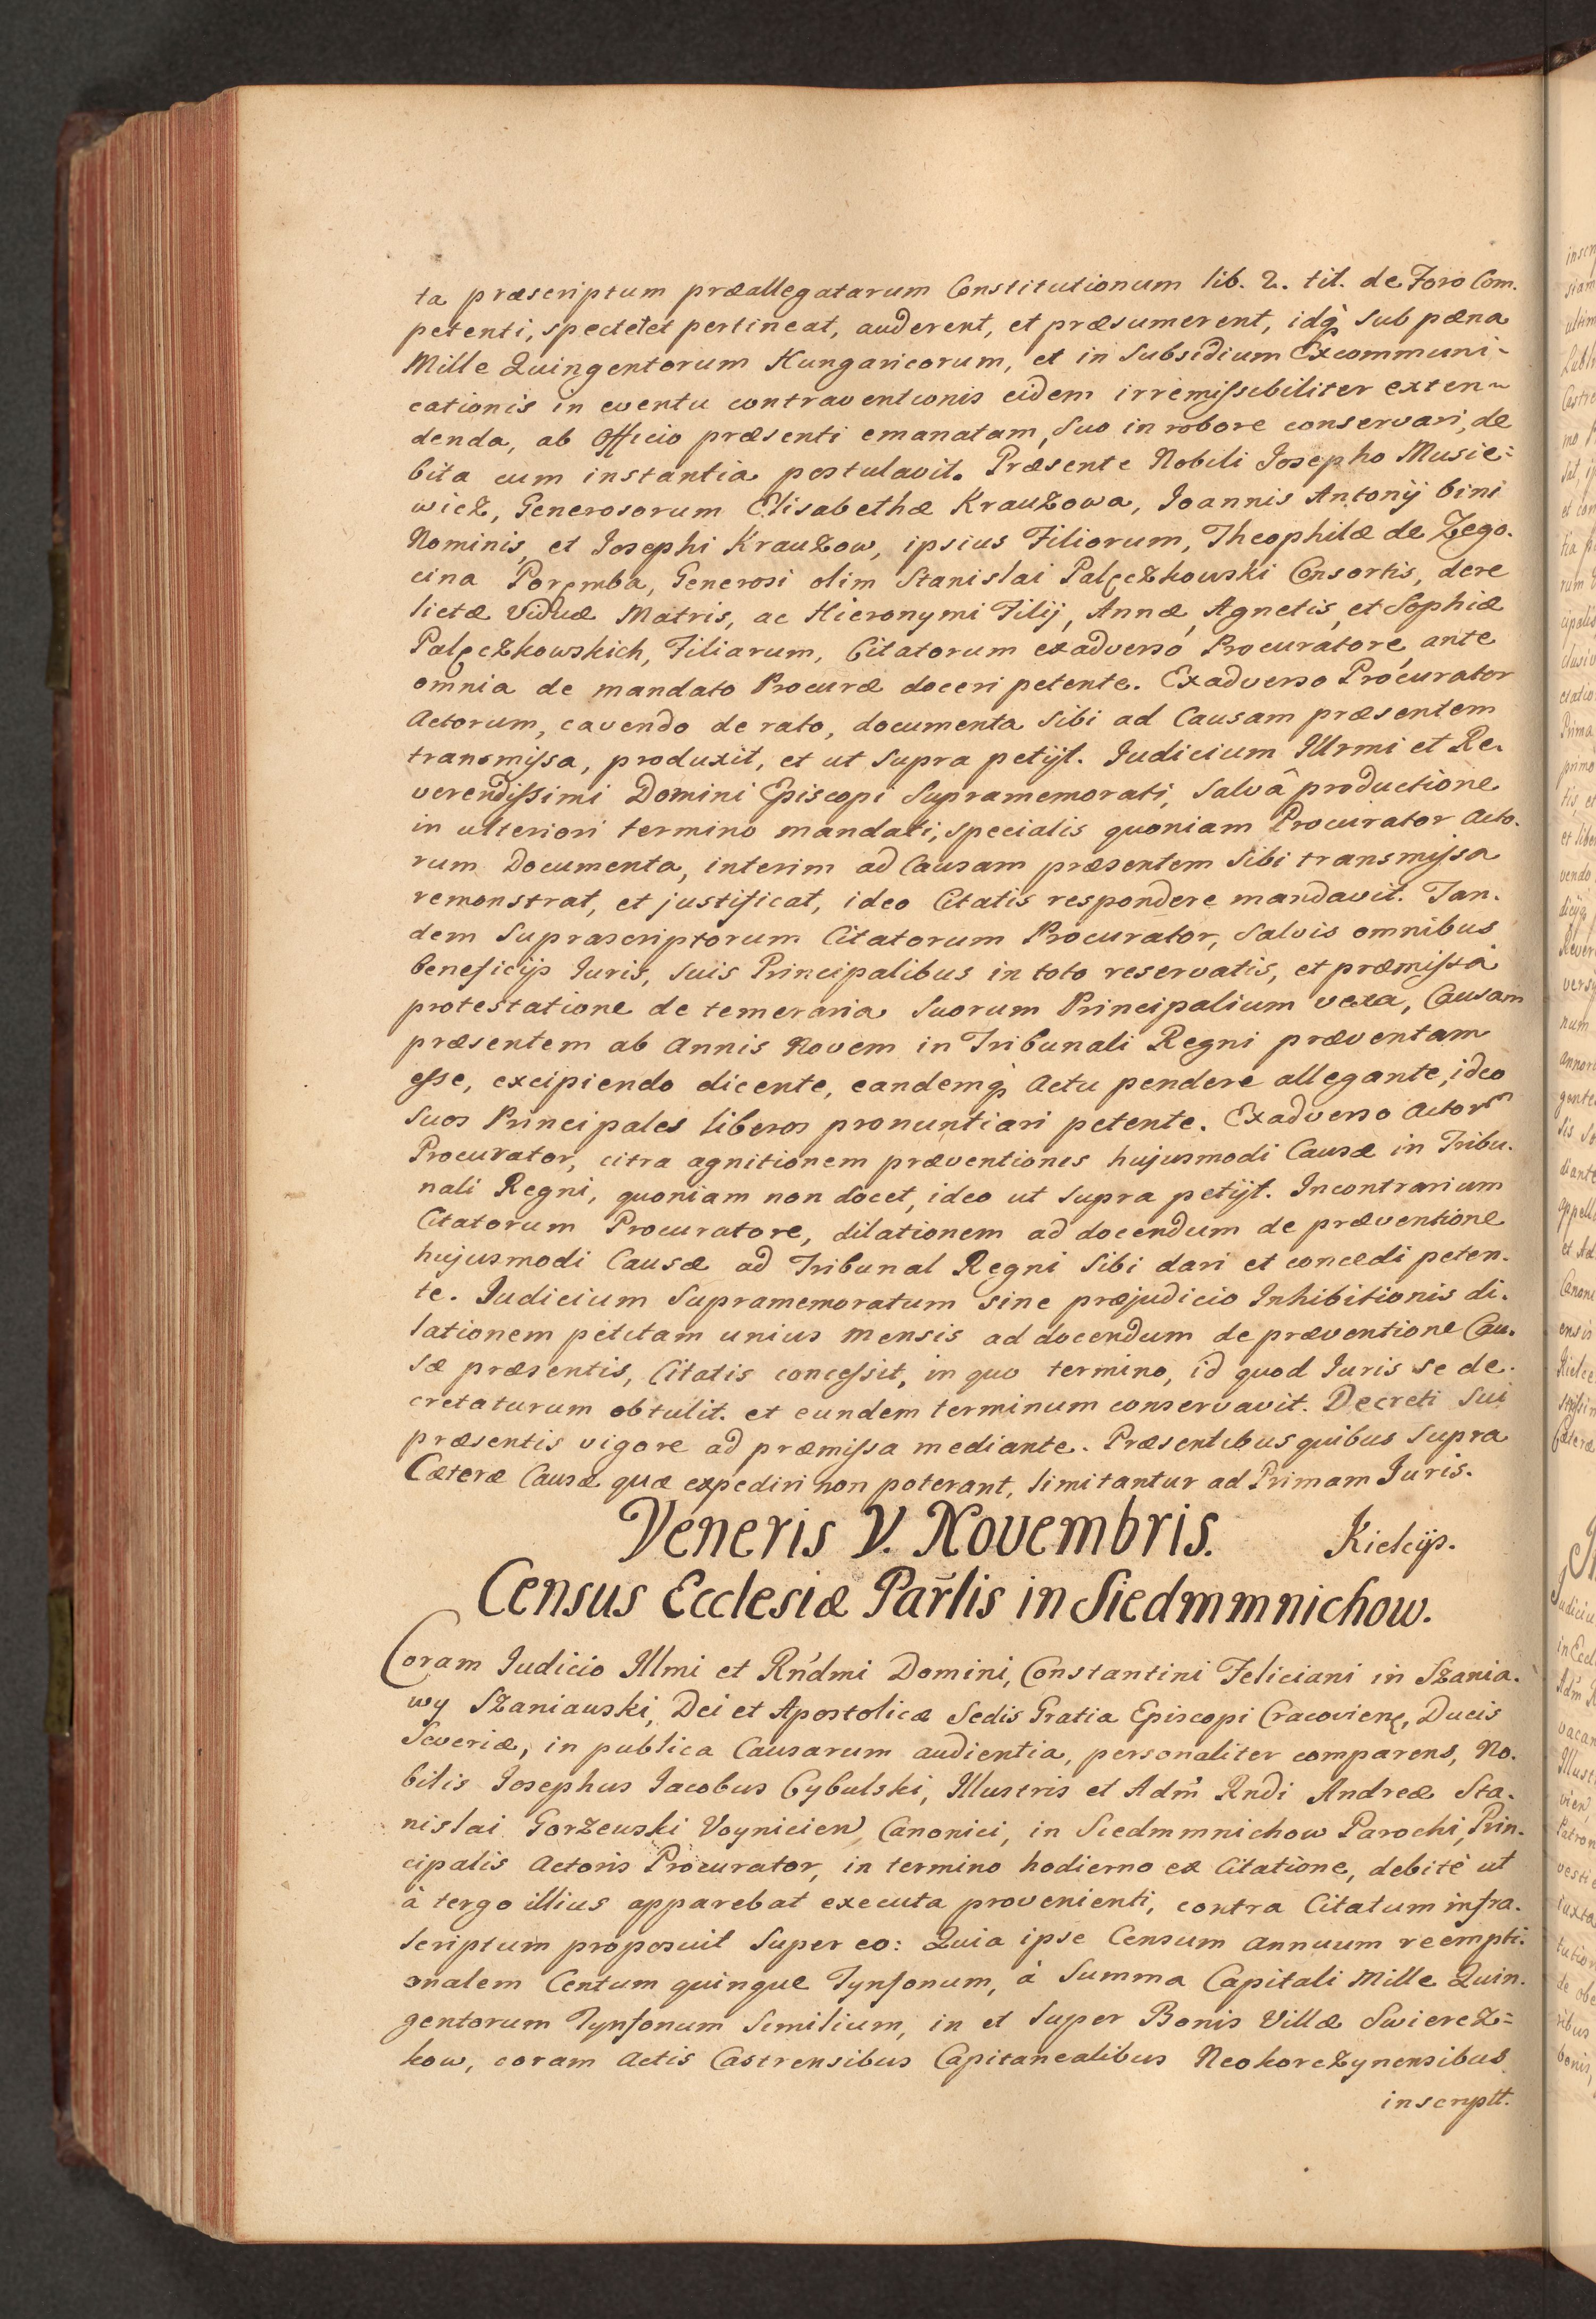 ta præscriptum præallegatarum Constitutionum lib. 2. tit. de Foro Com.
petenti, spectetet pertineat, auderent, et præsumerent, idq; sub pæna
Mille Quingentorum Hungaricorum, et in Subsidium Excommuni-
cationis in eventu contraventionis eidem irremissibiliter exten-
denda, ab Officio præsenti emanatam, Suo in robore conservari, de
bita cum instantia postulavit. Præsente Nobili Josepho Musie-
wicz, Generosorum Elisabethæ Krauzowa, Joannis Antonij bini
Nominis, et Josephi Krauzow, ipsius Filiorum, Theophilæ de Zego.
cina Poręmba, Generosi olim Stanislai Palęczkowski Consortis, dere
lictæ Viduæ Matris, ac Hieronymi Filij, Annæ, Agnetis, et Sophiæ
Palęczkowskich, Filiarum, Citatorum exadverso Procuratore, ante
omnia de mandato Procuræ doceri petente. Exadverso Procurator
Actorum, cavendo de rato, documenta Sibi ad Causam præsentem
transmissa, produxit, et ut Supra petijt. Judicium Illrmi et Re.
verendissimi Domini Episcopi Supramemorati, Salvâ productione
in ulteriori termino mandati, specialis quoniam Procurator Acto.
rum Documenta, interim ad Causam præsentem Sibi transmissa
remonstrat, et justificat, ideo Citatis respondere mandavit. Tan.
dem Suprascriptorum Citatorum Procurator, Salvis omnibus
beneficijs Juris, Suis Principalibus in toto reservatis, et præmissâ
protestatione de temeraria Suorum Principalium vexa, Causam
præsentem ab Annis Novem in Tribunali Regni præventam
esse, excipiendo dicente, eandemq; Actu pendere allegante, ideo
Suos Principales liberos pronuntiari petente. Exadverso Actorm
Procurator, citra agnitionem præventiones hujusmodi Causæ in Tribu.
nali Regni, quoniam non docet, ideo ut Supra petijt. Incontrarium
Citatorum Procuratore, dilationem ad docendum de præventione
hujusmodi Causæ ad Tribunal Regni Sibi dari et concedi peten.
te. Judicium Supramemoratum sine præjudicio Inhibitionis di.
lationem petitam unius mensis ad docendum de præventione Cau.
sæ præsentis, Citatis concessit, in quo termino, id quod Juris se de.
cretaturum obtulit. et eundem terminum conservavit. Decreti Sui
præsentis vigore ad præmissa mediante. Præsentibus quibus Supra
Cæteræ Causæ quæ expediri non poterant, limitantur ad Primam Juris.
Veneris V. Novembris. Kielcijs.
Census Ecclesiæ Parlis in Siedmmnichow.
Coram Judicio Illmi et Rndmi Domini, Constantini Feliciani in Szania.
wy Szaniawski, Dei et Apostolicæ Sedis Gratia Episcopi Cracovienę, Ducis
Severiæ, in publica Causarum audientia, personaliter comparens, No.
bilis Josephus Jacobus Cybulski, Illustris et Adm Rndi Andreæ Sta.
nislai Gorzewski Voynicien, Canonici, in Siedmmnichow Parochi, Prin.
cipalis Actoris Procurator, in termino hodierno ex Citatione, debite ut
à tergo illius apparebat executa provenienti, contra Citatum infra.
scriptum proposuit Super eo: Quia ipse Censum Annuum reempti.
onalem Centum quinque Tynfonum, à Summa Capitali Mille Quin.
gentorum Tynfonum Similium, in et Super Bonis Villæ Swiercz=
kow, coram Actis Castrensibus Capitanealibus Neokorczynensibus
inscriptt.